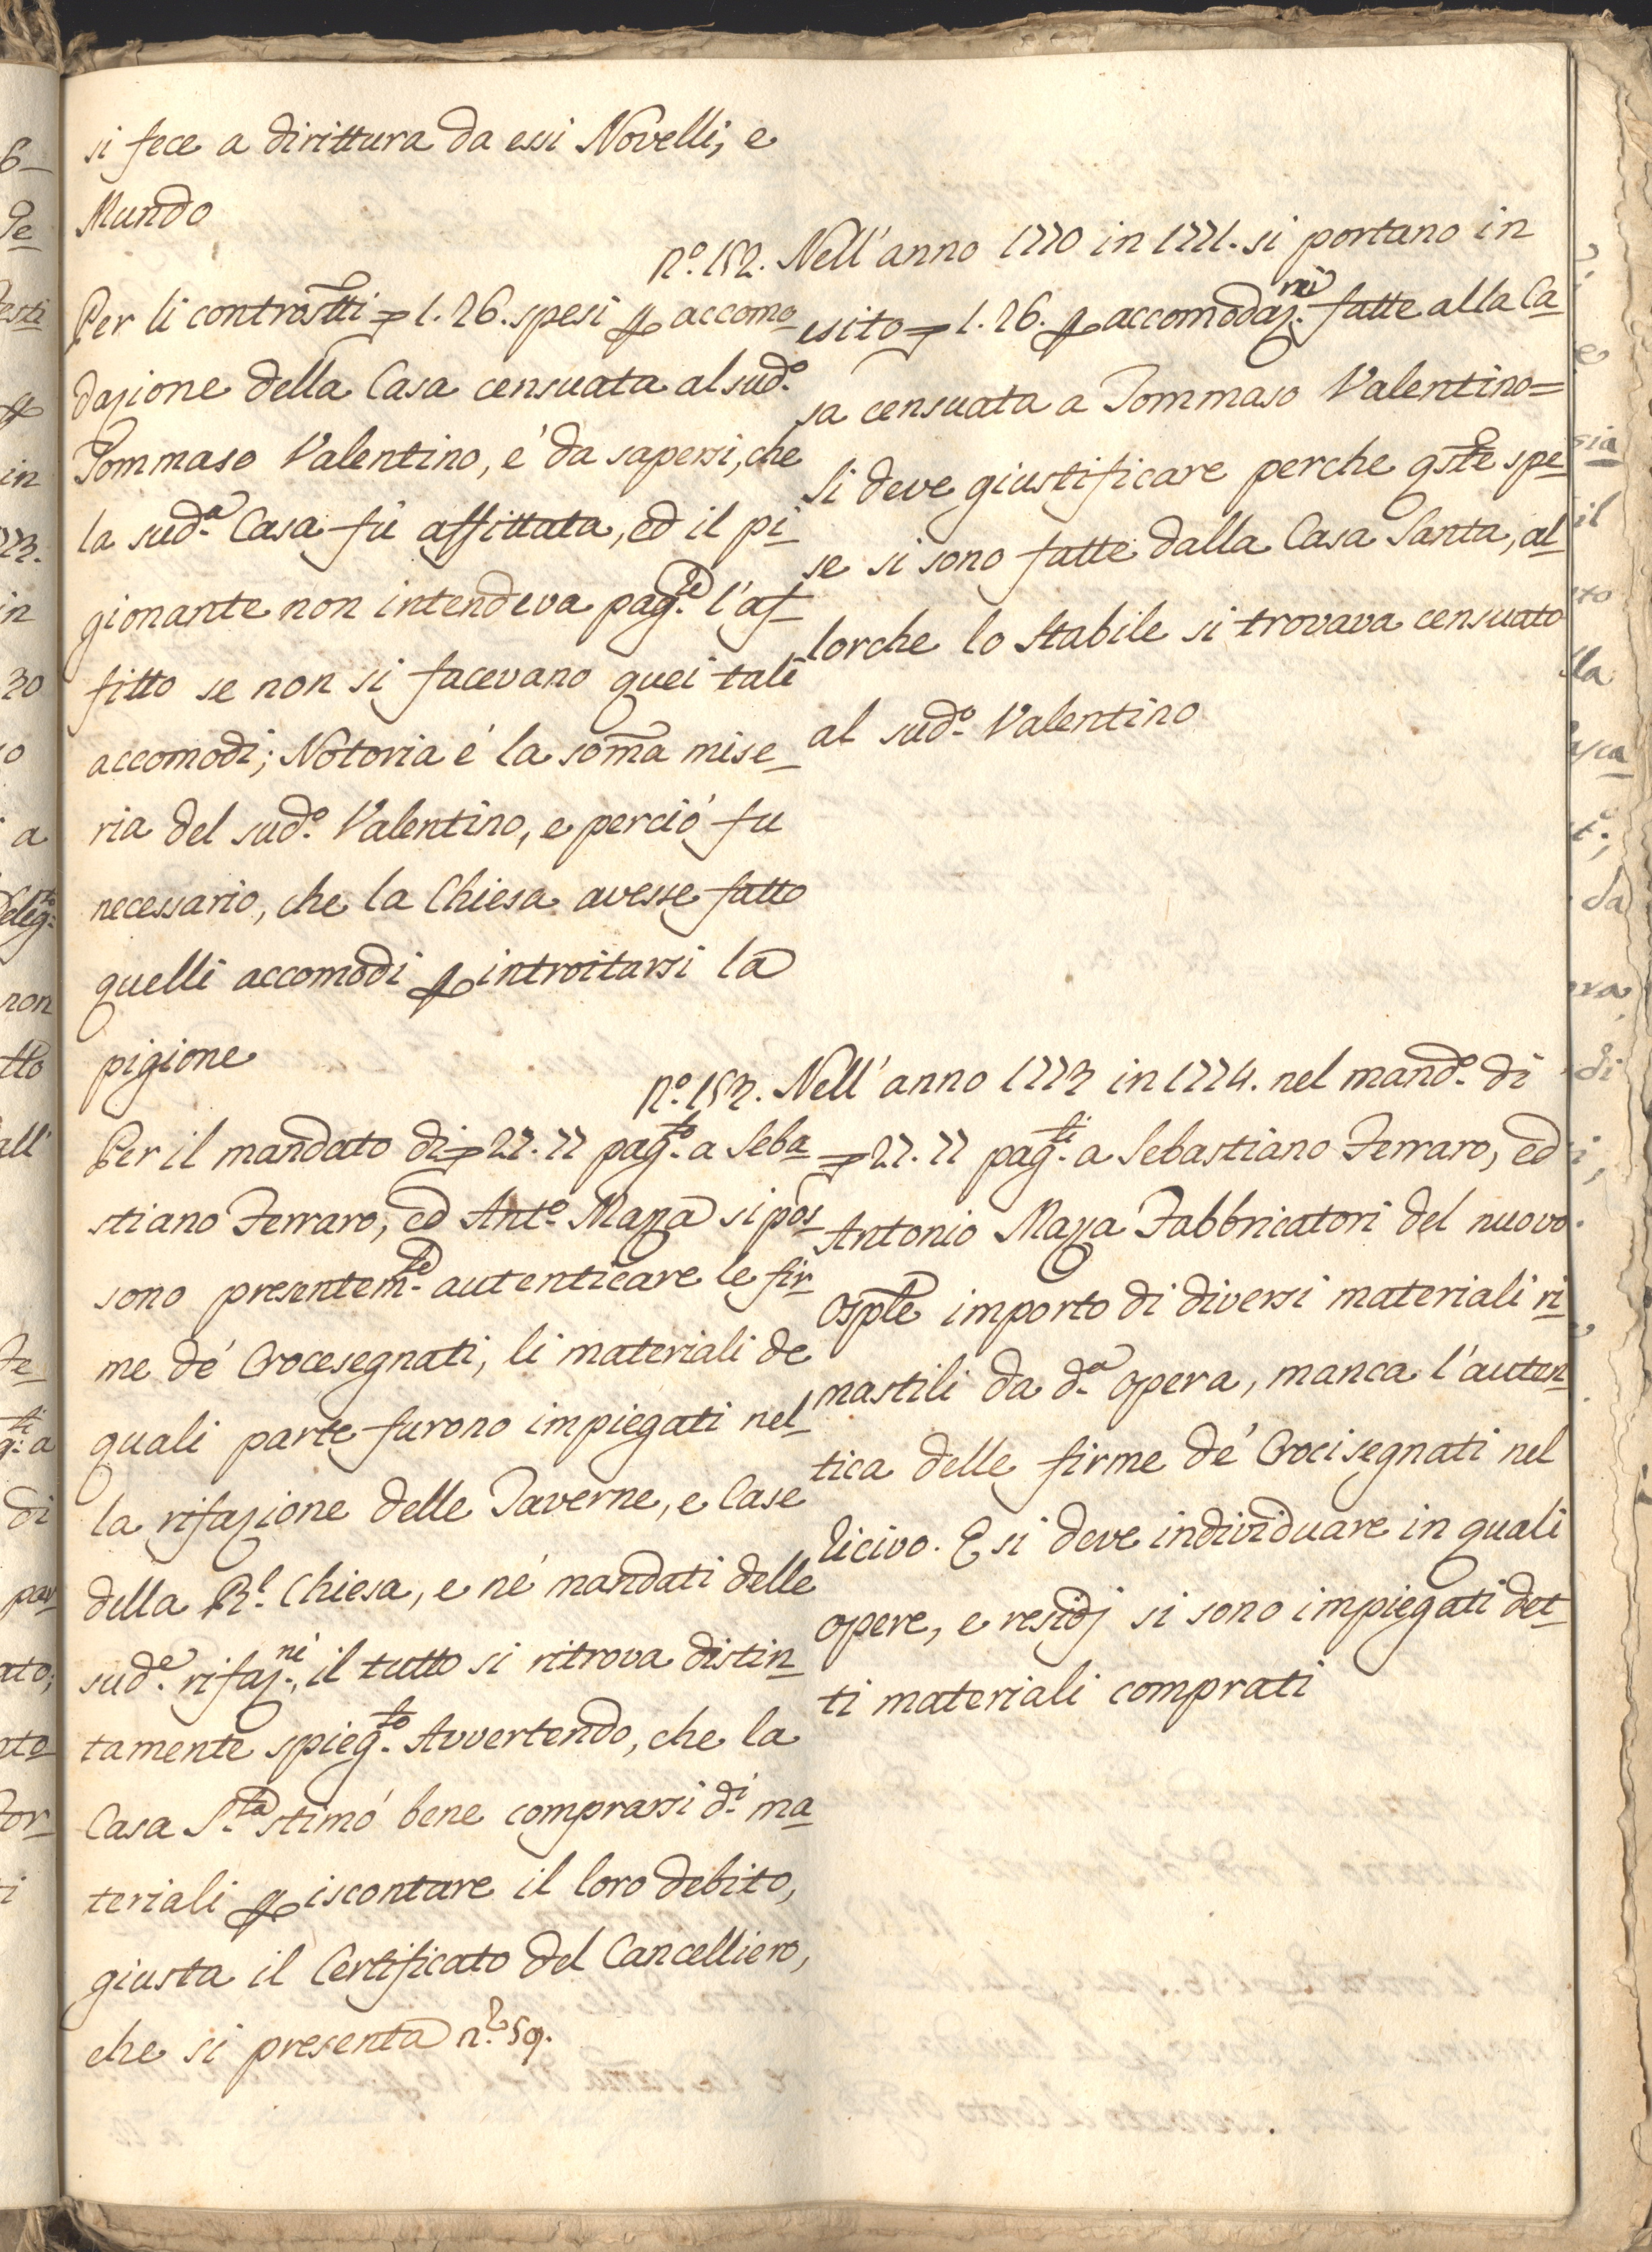 si fece a dirittura da essi Novelli, e
Mundo
Per li controstti 1.26. spesi p accomo-
dazione della Casa censuata al sud.o
Tommaso Valentino, é da sapersi, che
la sud.a Casa fù affittata, ed il pi-
gionante non intendeva pag.re l'af-
fitto se non si facevano quei tali
accomodi; Notoria é la soma mise-
ria del sud.o Valentino, e perció fu
necessario, che la Chiesa avesse fatto
quelli accomodi p introitarsi la
pigione
Per il mandato di 27.77 pag.to a Seba-
stiano Ferraro, ed Ant.o Mazza si pos-
sono presentem.te autenticare le fir-
me de' Crocesegnati, li materiali de
quali parte furono impiegati nel-
la rifazione delle Taverne, e Case
della R.l Chiesa, e ne' mandati delle
sud.e rifaz.ni, il tutto si ritrova distin-
tamente spieg.to Avvertendo, che la
Casa S.ta stimó bene comprarsi d.i ma-
teriali p iscontare il loro debito,
giusta il Certificato del Cancelliero,
che si presenta n.o 59.
N.o 152. Nell'anno 1770 in 1771. si portano in
esito 1.26. p accomodaz.ni fatte alla Ca-
sa censuata a Tommaso Valentino=
Si deve giustificare perche qste spe-
se si sono fatte dalla Casa Santa, al-
lorche lo stabile si trovava censuato
al sud.o Valentino
N.o 153. Nell'anno 1773 in 1774. nel mand.o di
27.77 pag.ti a Sebastiano Ferraro, ed
Antonio Mazza Fabbricatori del nuovo
Osple importo di diversi materiali ri-
mastili da d.a opera, manca l'auten-
tica delle firme de' Crocisegnati nel
licivo. E si deve individuare in quali
opere, e residj si sono impiegati det-
ti materiali comprati